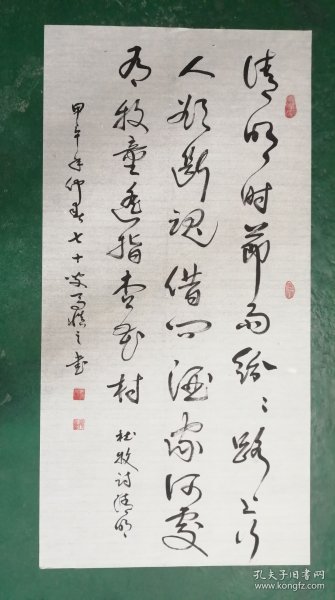 清明时节雨纷纷路上行
人欲断魂借问酒家何处
有牧童遥指杏花村
杜牧诗清明
甲午年仲春七十叟
之书
孔夫子旧书网
www.kongfz.com